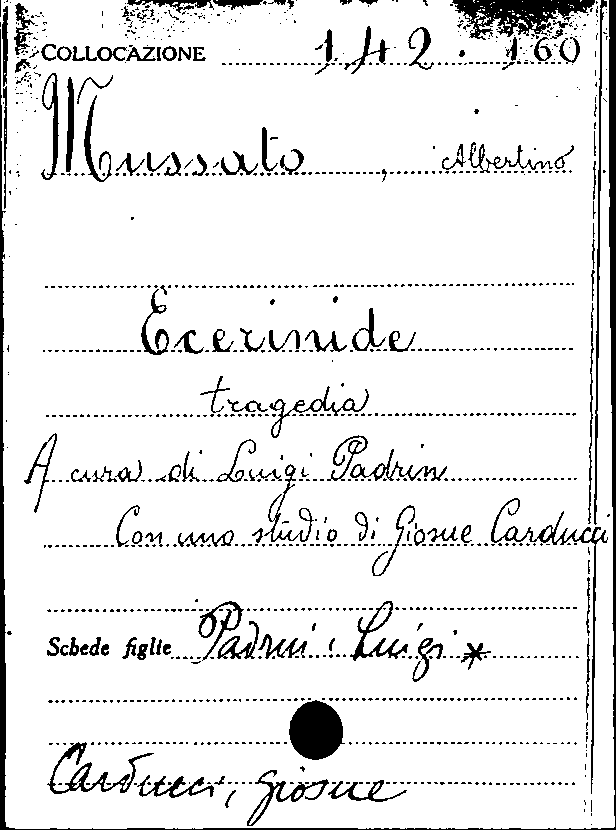 COLLOCAZIONE 142.160
Mussato, Albertino
Ecerinide
tragedia
A cura di Luigi Padrin
Con uno studio di Giosue Carducci
Schede figlie Padrin, Luigi *
Carducci, Giosue